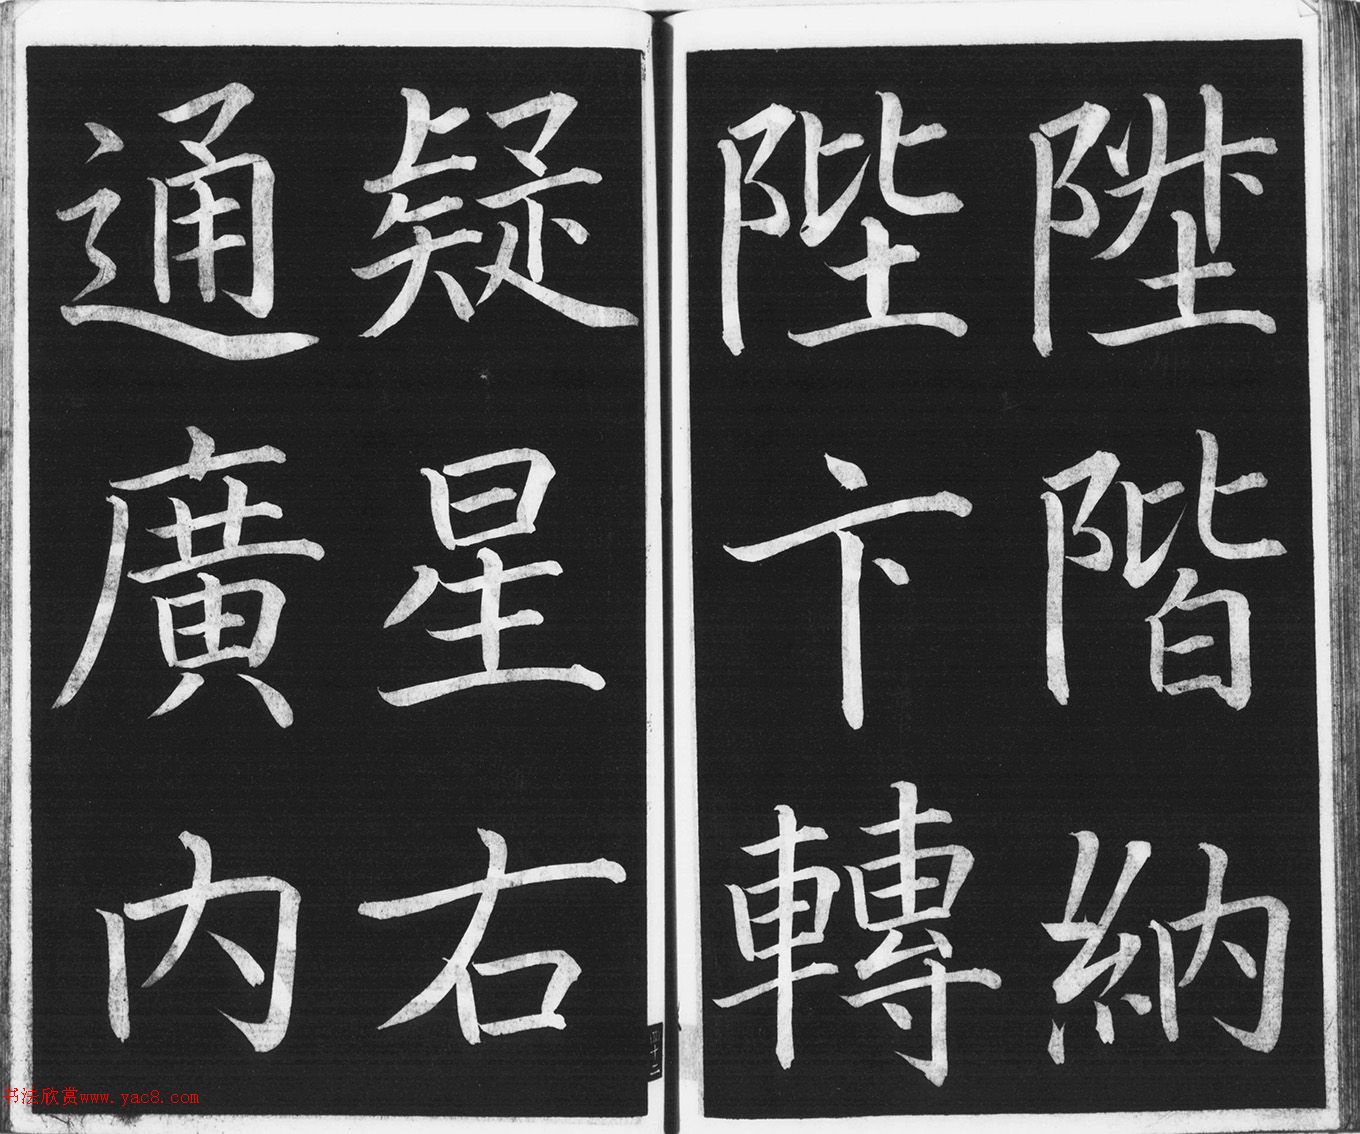 陞階納
陛卞轉
疑星右
通廣內
书法欣赏www.yac8.com